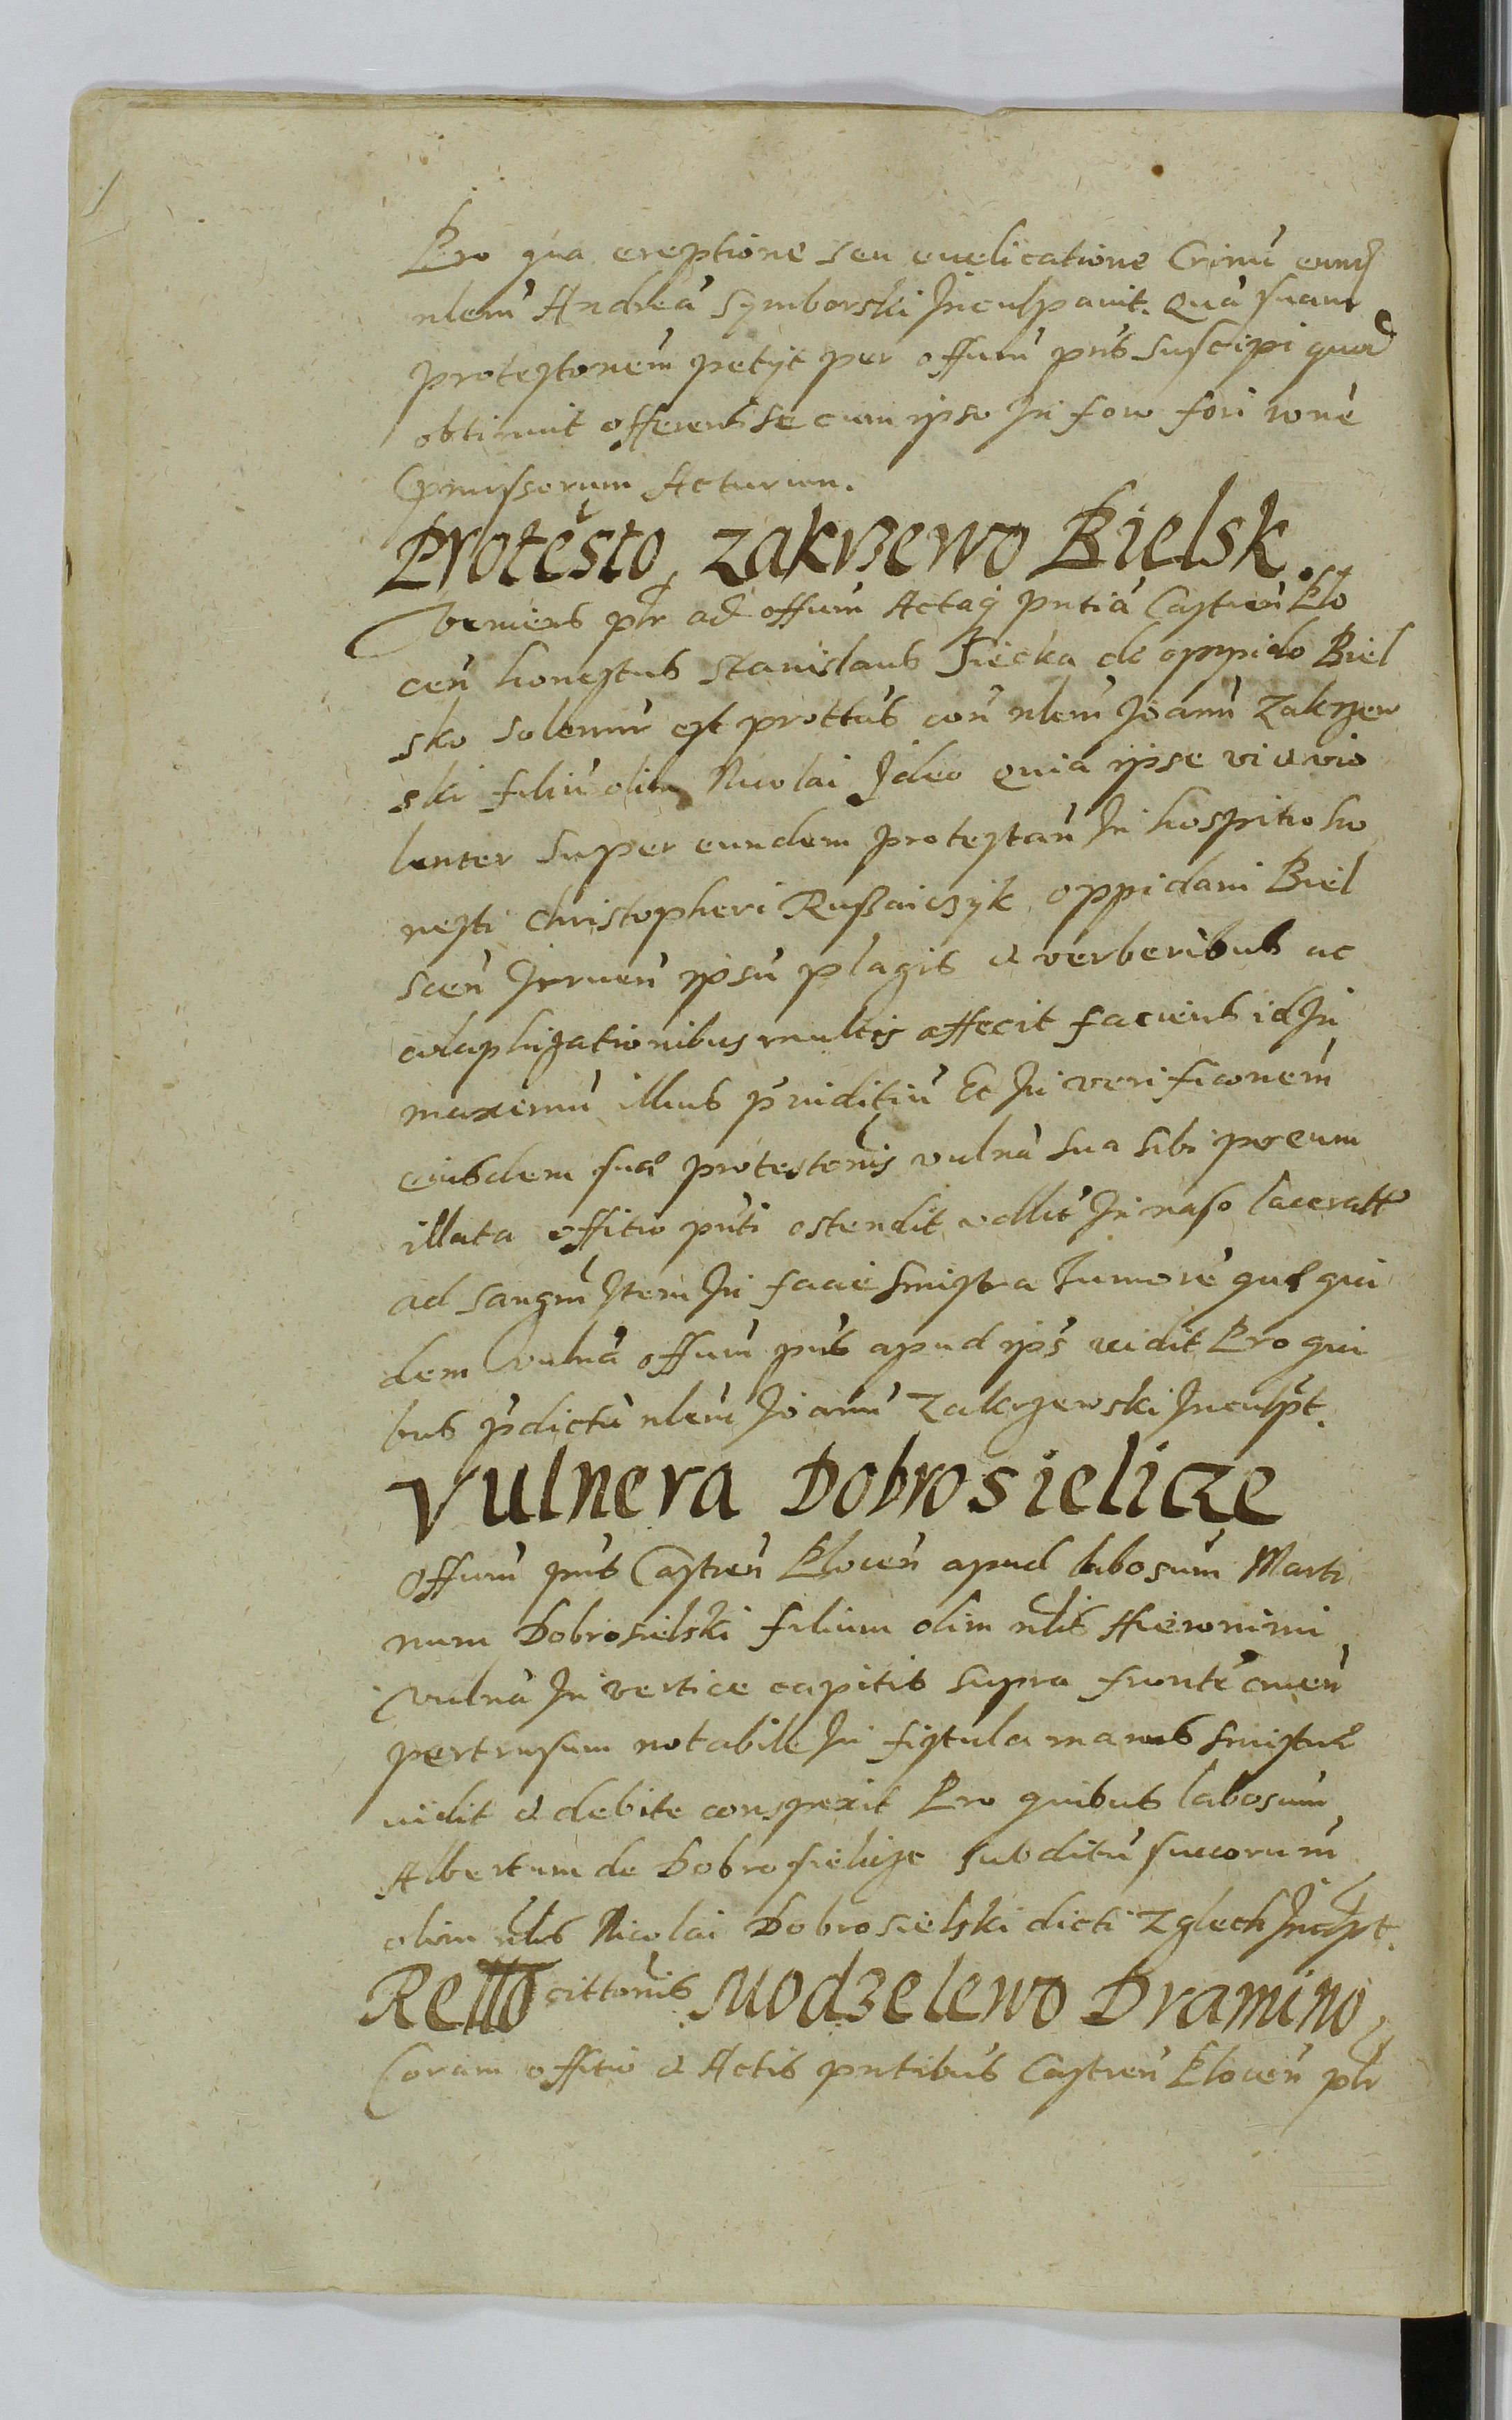 Pro qua ereptione seu evelicatione Crinū eund
nlem̄ Andreā Symborski Inculpavit. Quā suam
protestonem petyt per offum̄ pn̄s suscipi quod
obtinuit offerens se cum ipso In foro fori rōne
pmissorum Acturum.
Protesto, Zakrzewo Bielsk
Veniens plr ad offum̄ Actaq̨ pn̄tiā Castren̄ Plo
cen̄ honestus Stanislaus Siecka de oppido Biel
sko solenn̄r est prottūs con̄ nlem̄ Joan̄n̄ Zakrzew
ski filiū olim Nicolai Ideo quia ipse vi & vio
lenter super eundem protestan̄ In hospitio ho
nesti Christopheri Ruszaiczyk oppidani Biel
scen̄ Irruen̄ ipsū plagis & verberibus ac
colaphizationibus multis affecit faciens id In
maximū illius p̄iuditiū Et In verificonem̄
eiusdem suæ protestonis vulnā sua sibi per eum
illata offitio pn̄ti ostendit vdlt̄ In naso laceratū
ad sangm̄ Item In facie sinistra Tumorē quæ qui
dem vulnā offum̄ pn̄s apud ips̄ vidit Pro qui
bus p̄dictū nlem̄ Joan̄n̄ Zakrzewski Inculpt.
Vulnera Dobrosielicze
Offum̄ pn̄s Castren̄ Plocen̄ apud labosum Marti
num Dobrosielski filium olim nlis Hieronimi
vulnā In vertice capitis supra frontē cruen̄
pertusum notabile In fistula manus sinistræ
vidit & debite conspexit Pro quibus labosum
Albertum de Dobrosielicze subditū succorum̄
olim nlis Nicolai Dobrosielski dicti Zglech Inculpt.
Retto cittonis Modzelewo Dramino
Coram offitio & Actis pn̄tibus Castren̄ Plocen̄ plr